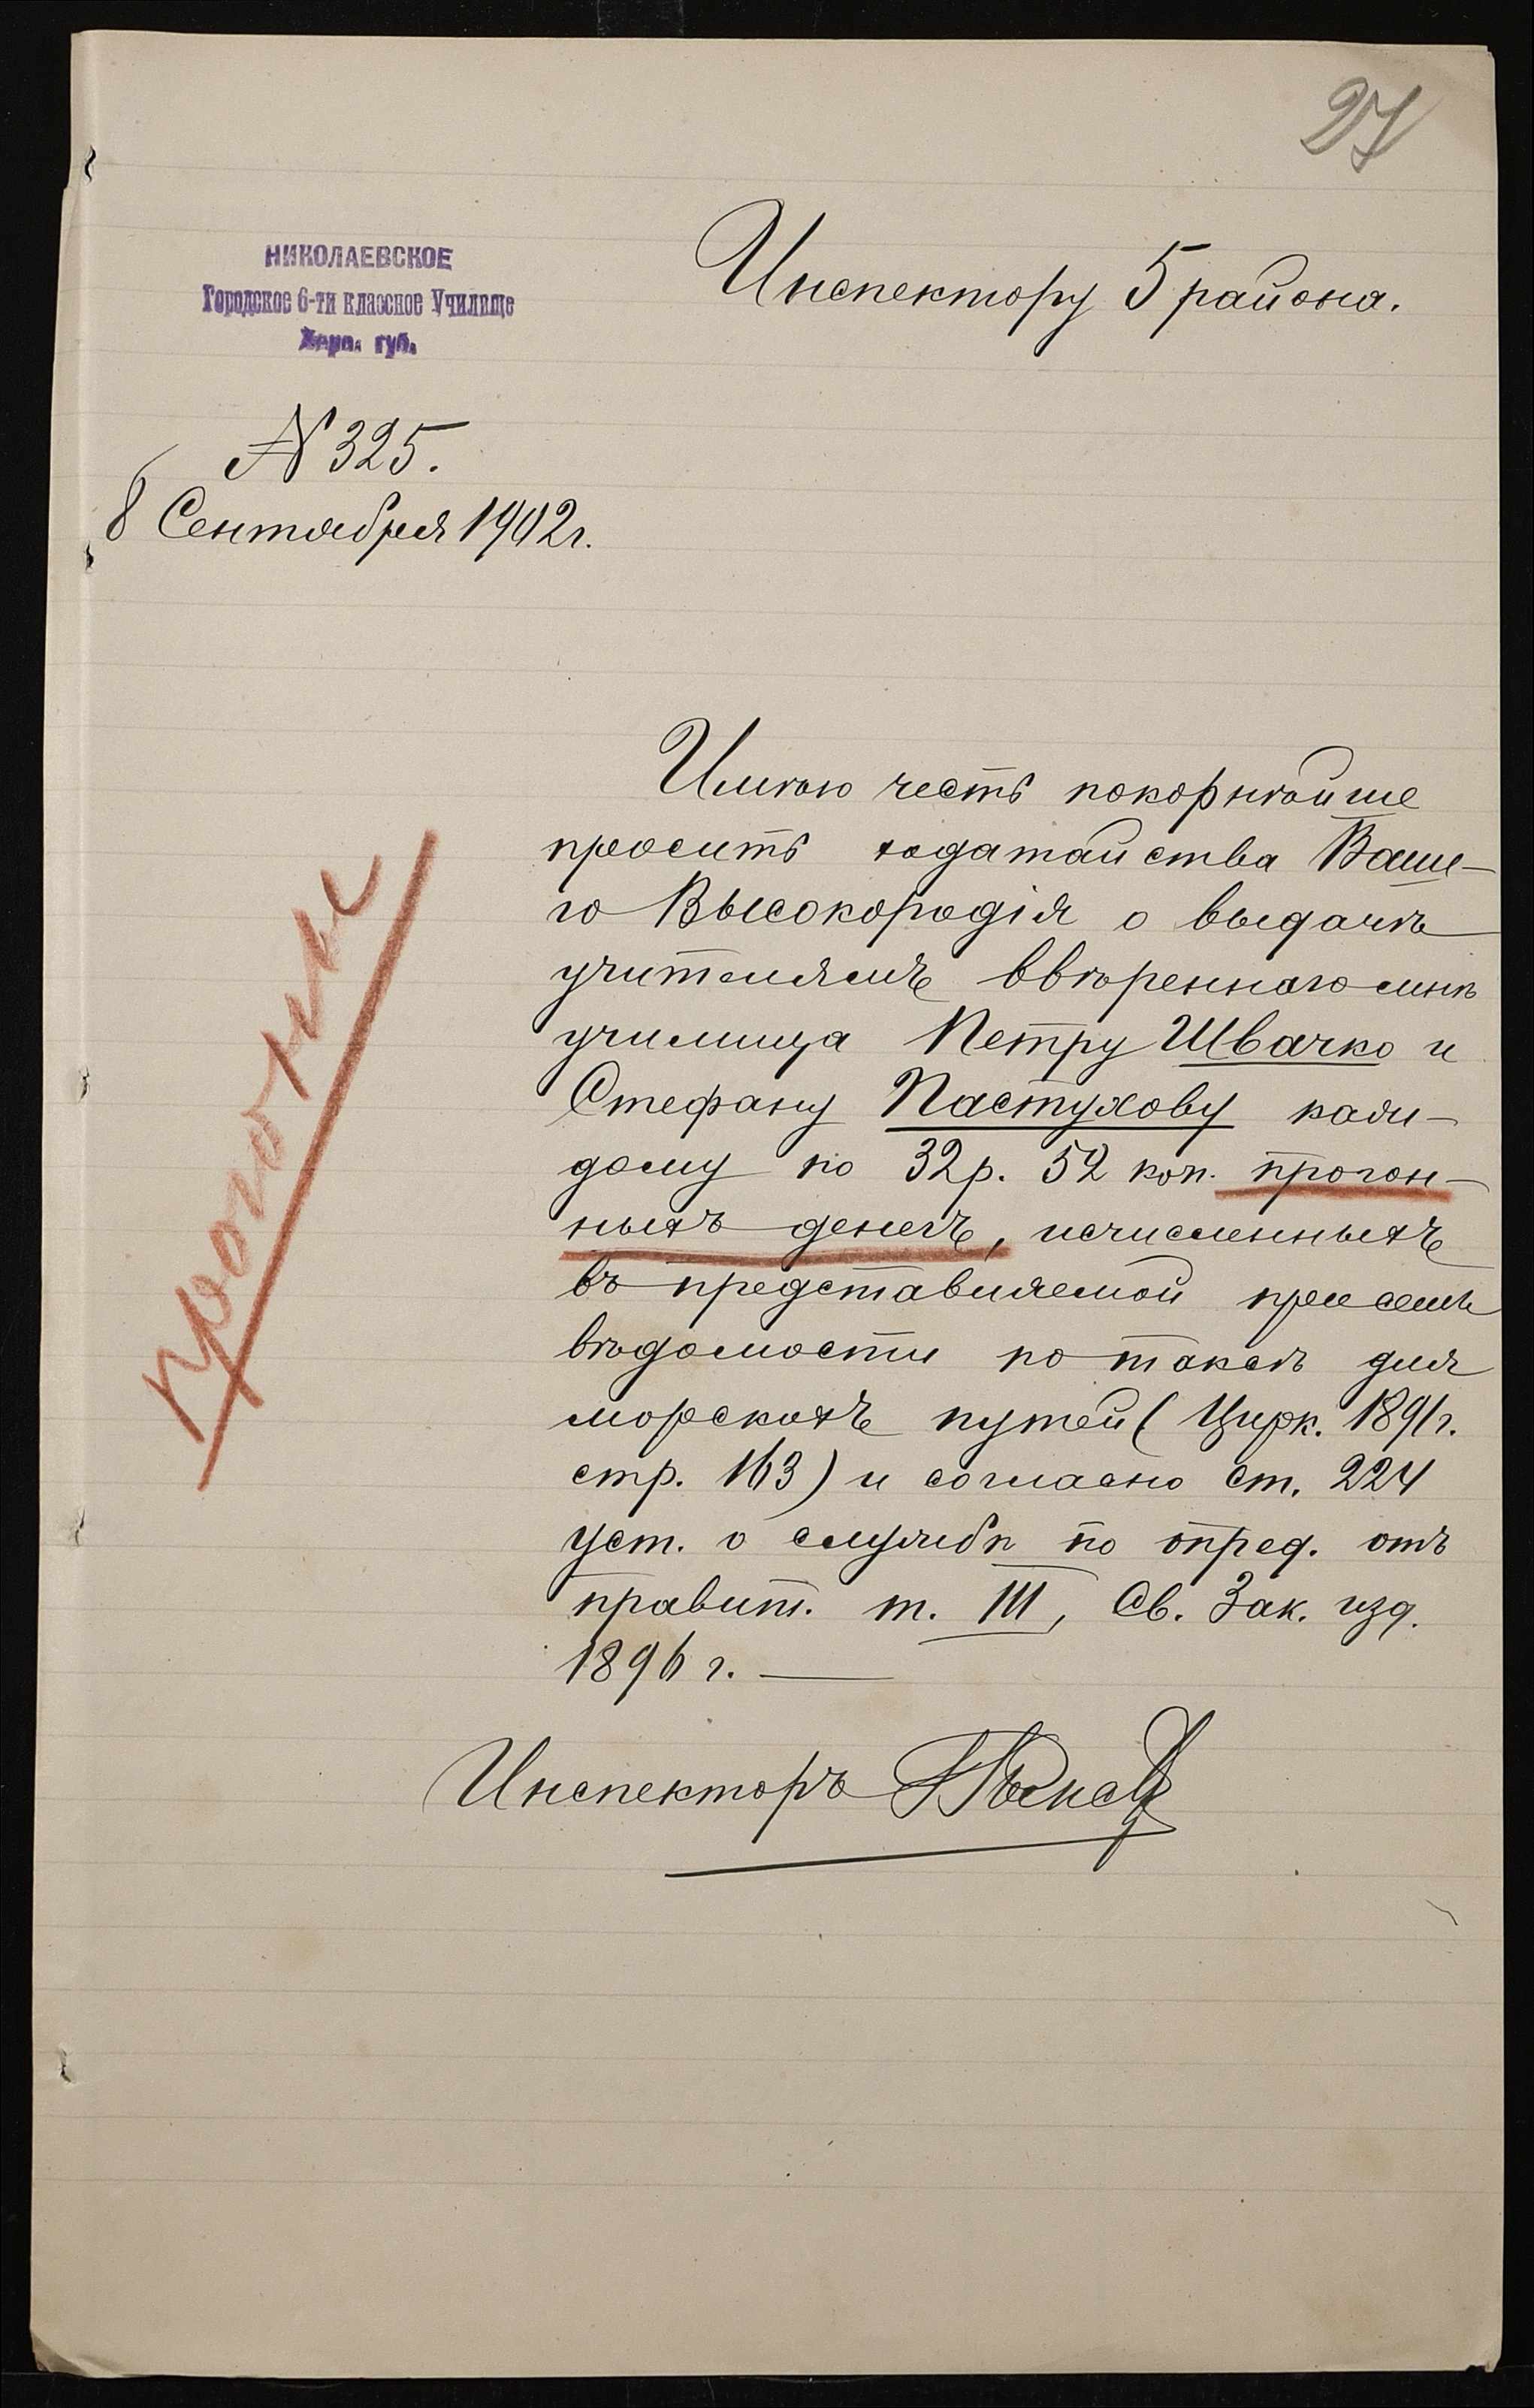 27
НИКОЛАЕВСКОЕ
Городское 6-ти классное Училище
Херс. губ.
Инспектору 5 района.
№ 325.
8 Сентября 1902 г.
Имѣю честь покорнѣйше
просить ходатайства Ваше-
го Высокородія о выдачѣ
учителямъ ввѣреннаго мнѣ
училища Петру Швачко и
Стефану Пастухову каж-
дому по 32 р. 52 коп. прогон-
ныхъ денегъ, исчисленныхъ
въ представляемой при семъ
вѣдомости по таксѣ для
морскихъ путей (Цирк. 1891 г.
стр. 163) и согласно ст. 224
уст. о службѣ по опред. отъ
правит. т. III, Св. Зак. изд.
1896 г.
прогонные
Инспекторъ